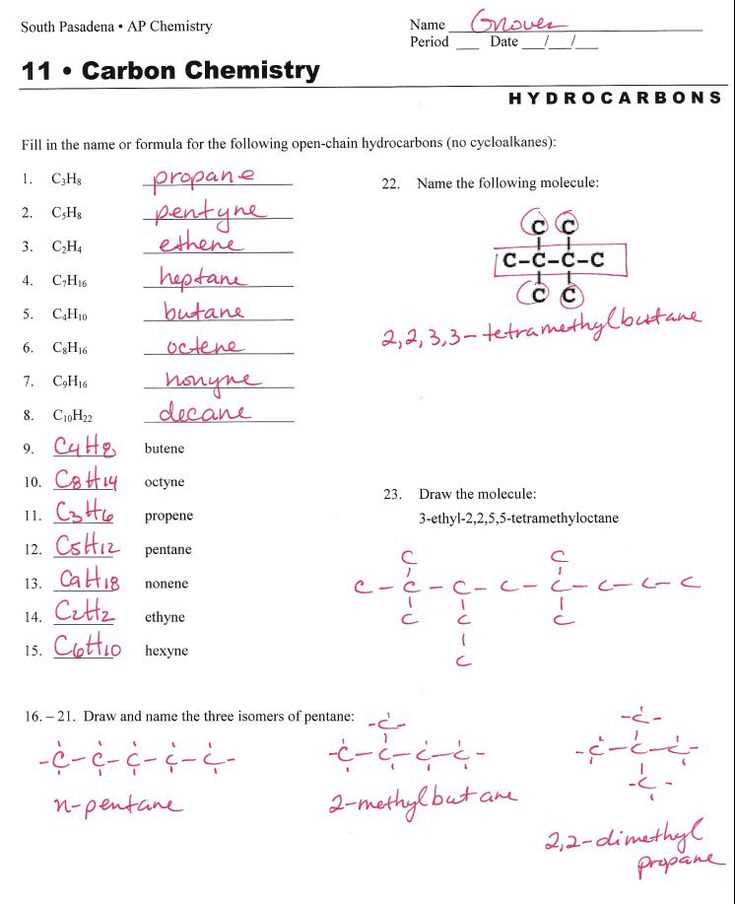 South Pasadena • AP Chemistry
Name Grover
Period ____ Date ___/___/___
11 • Carbon Chemistry
HYDROCARBONS
Fill in the name or formula for the following open-chain hydrocarbons (no cycloalkanes):
1. C₃H₈ propane
2. C₅H₈ pentyne
3. C₂H₄ ethene
4. C₇H₁₆ heptane
5. C₄H₁₀ butane
6. C₈H₁₆ octene
7. C₉H₁₆ nonyne
8. C₁₀H₂₂ decane
9. C₄H₈ butene
10. C₈H₁₄ octyne
11. C₃H₆ propene
12. C₅H₁₂ pentane
13. C₉H₁₈ nonene
14. C₂H₂ ethyne
15. C₆H₁₀ hexyne
22. Name the following molecule:
C C
C-C-C-C
C C
2,2,3,3-tetramethylbutane
23. Draw the molecule:
3-ethyl-2,2,5,5-tetramethyloctane
C C
C-C-C-C-C-C-C-C
C C C
C
16. – 21. Draw and name the three isomers of pentane:
-C-C-C-C-C-
n-pentane
-C-
-C-C-C-C-
2-methylbutane
-C-
-C-C-C-
-C-
2,2-dimethyl
propane